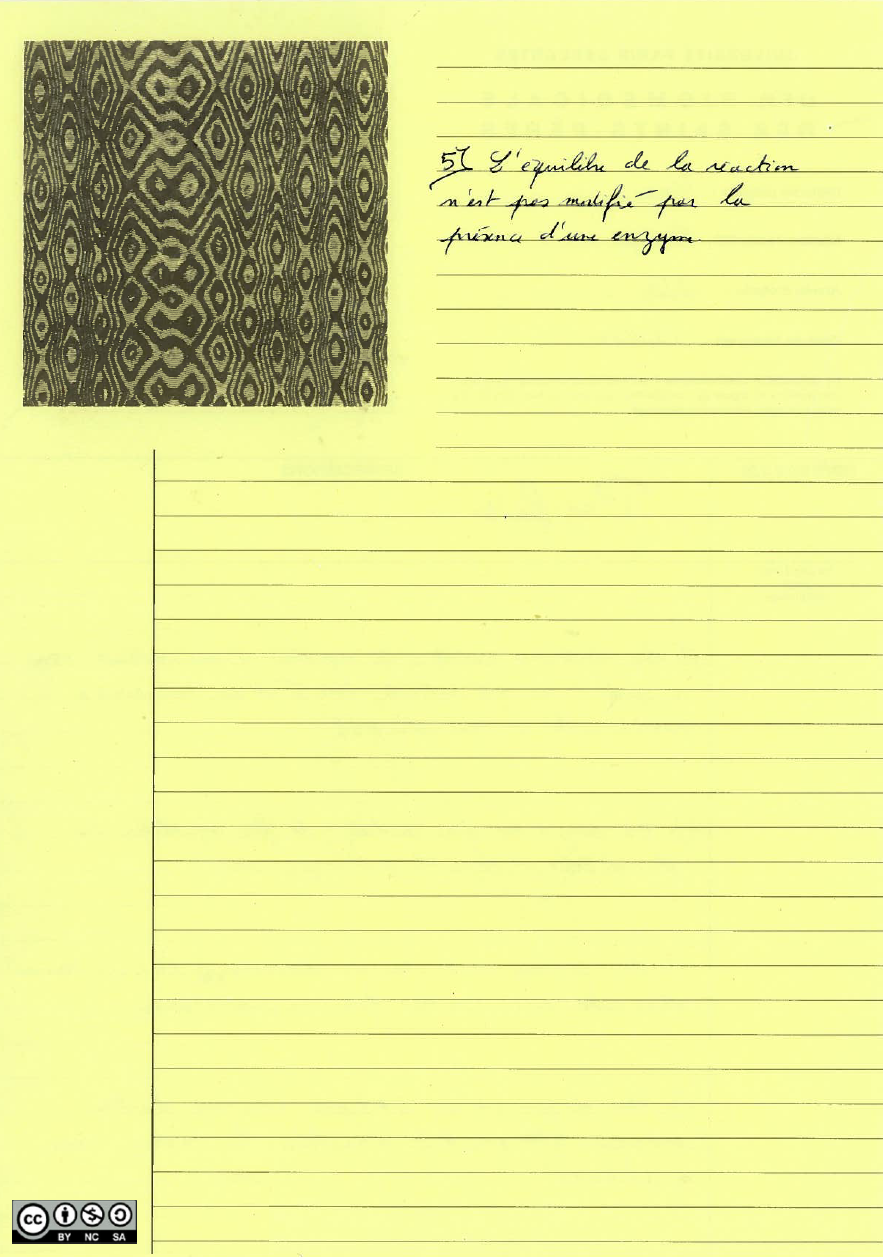 5) L'équilibre de la réaction
n'est pas modifié par la
présence d'une enzyme.
cc
BY NC SA